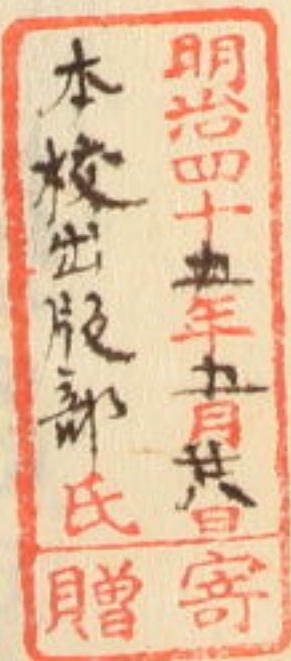 明治四十五年五月廿八日寄
本校出版部氏贈